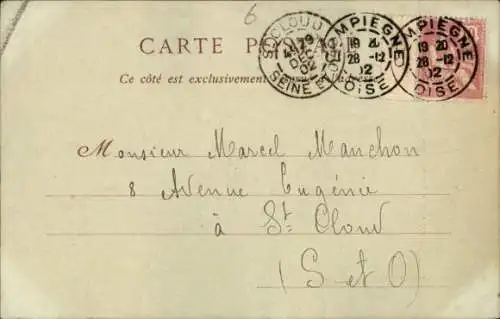 6
CARTE POSTALE
Ce côté est exclusivement réservé à l'adresse
ST CLOUD
SEINE ET OISE
COMPIEGNE
19 20
28 -12
02
OISE
COMPIEGNE
19 20
28 -12
02
OISE
Monsieur Marcel Manchon
8 Avenue Eugénie
à St. Cloud
(S et O)